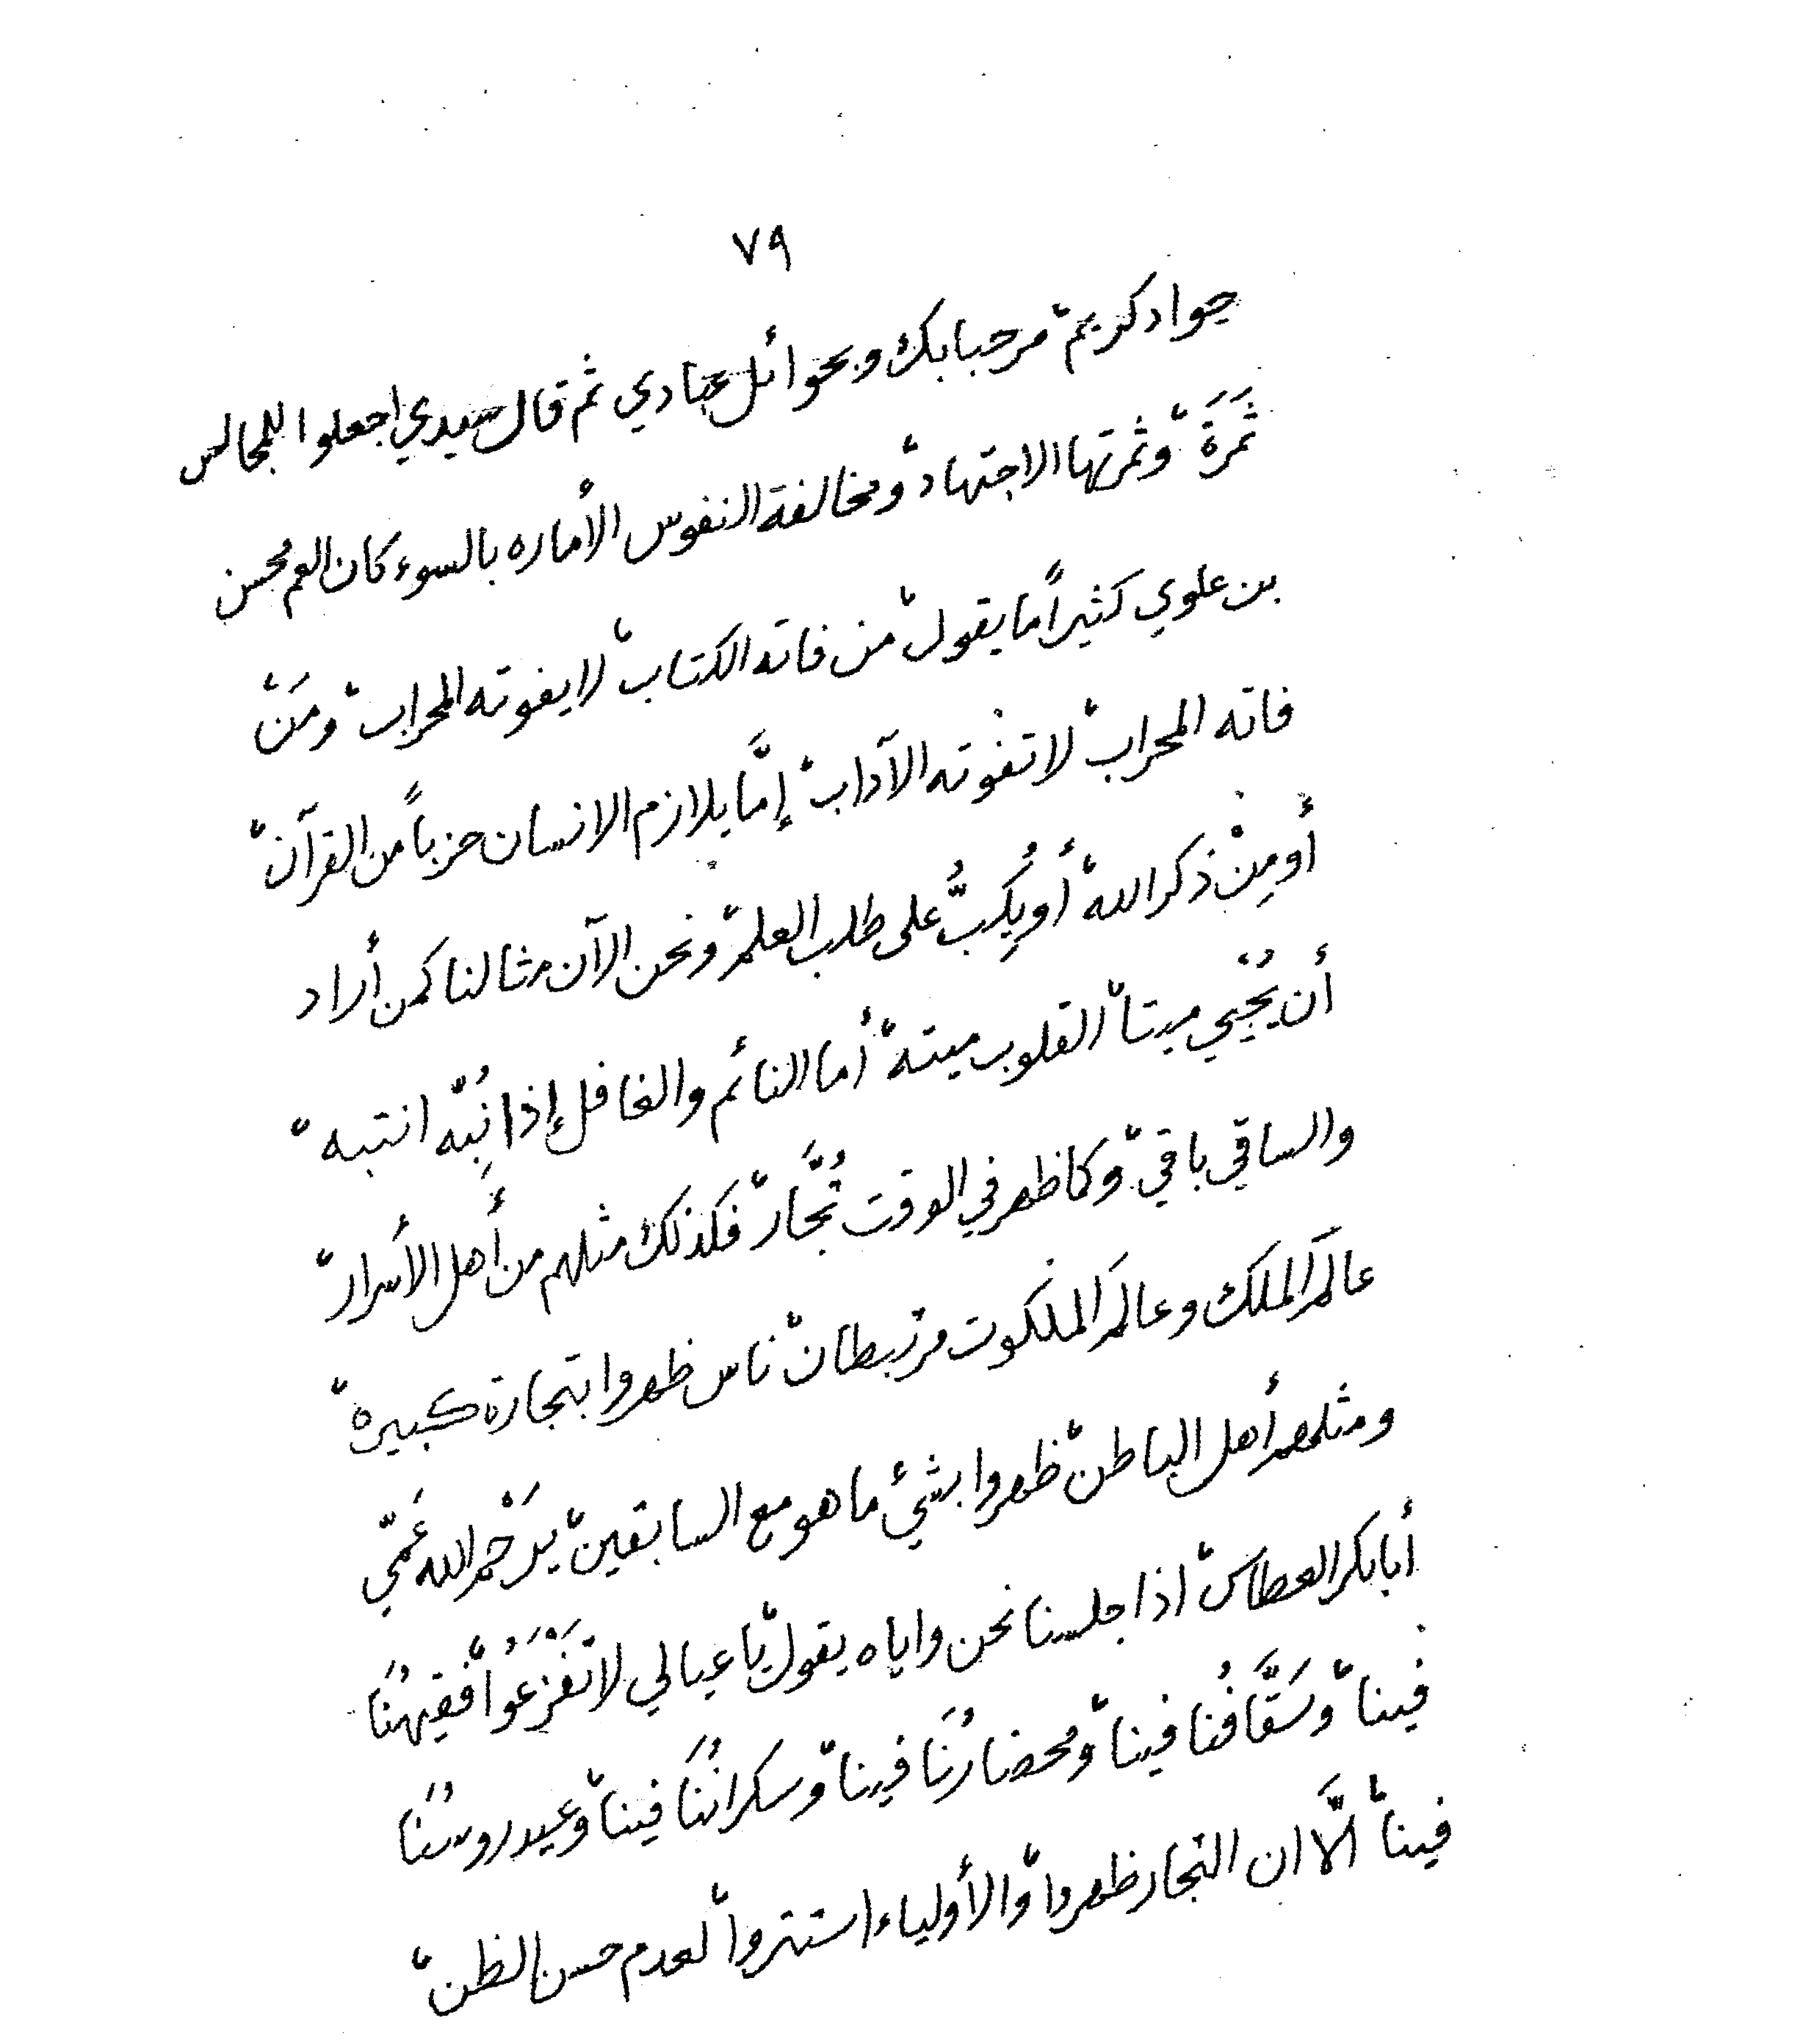 ٧٩
جواد كريم، مرحبا بك وبحوائل عبادي ثم قال سيدي اجعلوا للمجالس
ثَمَرَة، وثمرتها الاجتهاد، ومخالفة النفوس الأماره بالسوء كان العم محسن
بن علوي كثيراً ما يقول، من فاته الكتاب، لا يفوته المحراب، ومَنْ
فاته المحراب، لا تفوته الآداب، إمَّا يلازم الانسان حزباً من القرآن،
أو مِنْ ذكر الله، أو يُكِبُّ على طلب العلم، ونحن الآن مثالنا كمن أراد
أن يُحْيي ميتا، القلوب ميته، أما النائم والغافل إذا نُبِّه انتبه،
والساقي باقي، وكما ظهر في الوقت تُجَّار، فكذلك مثلهم من أهل الأسرار،
عالَم المَلك وعالَم المَلكوت مرتبطان، ناس ظهروا بتجارة كبيره،
ومثلهم أهل الباطن، ظهروا بشيئ ما هو مع السابقين، يَرْحَم الله عَمِّي
أبابكر العطاس، اذا جلسنا نحن واياه يقول، يا عيالي لا تَفْزَعُوا، فقيهُنَا
فينا، وسَقَّافُنا فينا، ومحضارُنَا فينا، وسكرانُنَا فينا، وعيدروسُنَا
فينا، الَّا ان التجار ظهروا، والأولياء استتروا، لعدم حسن الظن،